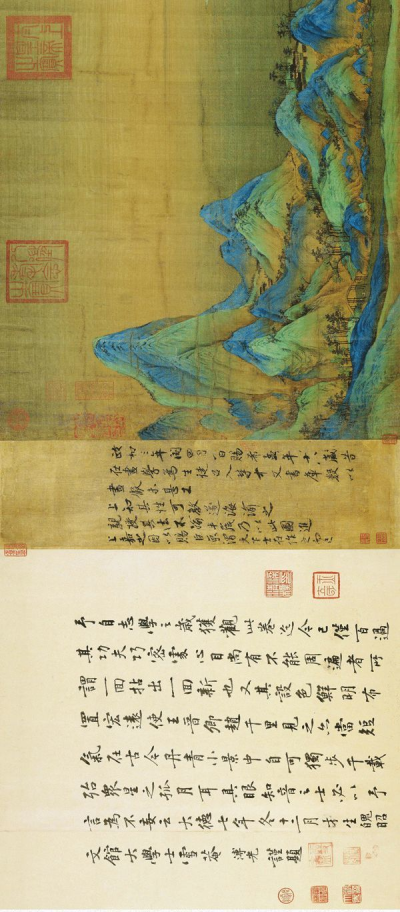 政和三年閏四月一日賜希孟年十八歲昔
在畫學為生徒召入禁中文書庫數以
畫獻未甚工
上知其性可教遂誨諭之
親授其法不踰半歲乃以此圖進
上嘉之因以賜臣京謂天下士在作之而已
予自志學之歲獲觀此卷迄今已僅百過
其功夫巧密處心目尚有不能周遍者所
謂一回拈出一回新也又其設色鮮明布
置宏遠使王晉卿趙千里見之亦當短
氣在古今丹青小景中自可獨步千載
殆眾星之孤月耳具眼知音之士必以予
言為不妄云大德七年冬十二月才生魄昭
文館大學士雪菴溥光謹題